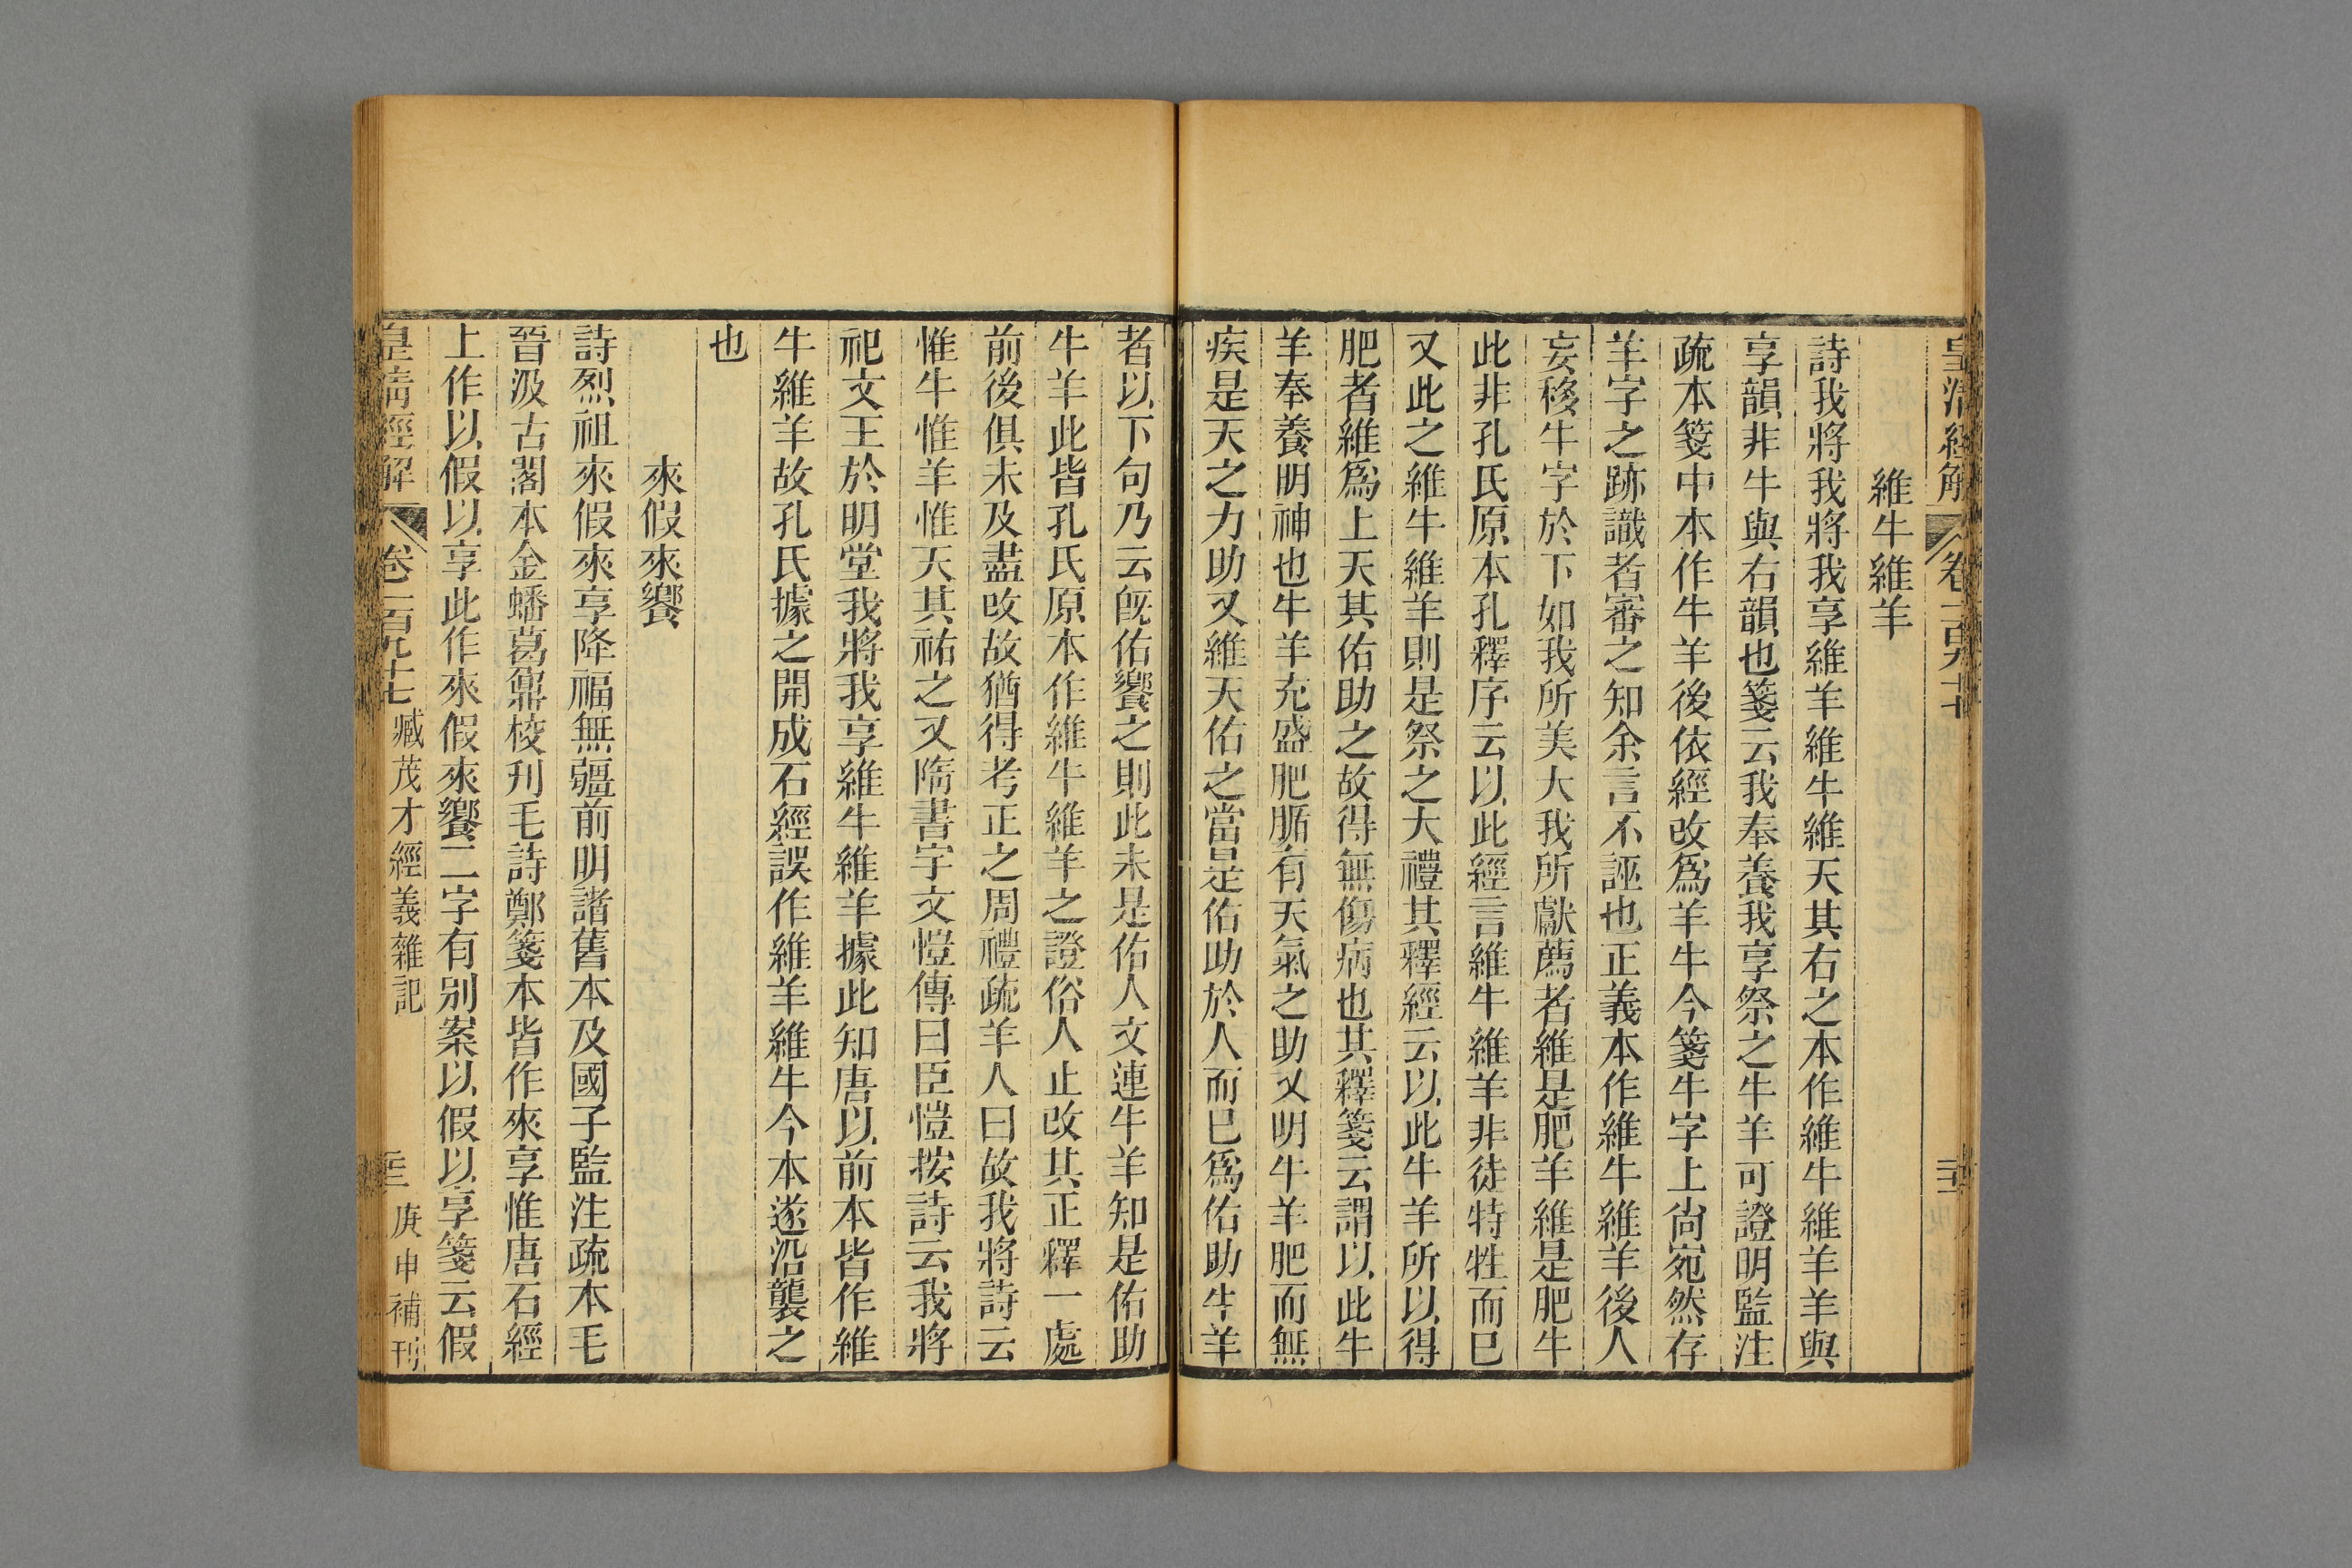 皇清經解
卷一百九十七
維牛維羊
詩我將我將我享維羊維牛維天其右之本作維牛維羊羊與
享韻非牛與右韻也箋云我奉養我享祭之牛羊可證明監注
疏本箋中本作牛羊後依經改爲羊牛今箋牛字上尙宛然存
羊字之跡識者審之知余言不誣也正義本作維牛維羊後人
妄移牛字於下如我所美大我所獻薦者維是肥羊維是肥牛
此非孔氏原本孔釋序云以此經言維牛維羊非徒特牲而巳
又此之維牛維羊則是祭之大禮其釋經云以此牛羊所以得
肥者維爲上天其佑助之故得無傷病也其釋箋云謂以此牛
羊奉養明神也牛羊充盛肥腯有天氣之助又明牛羊肥而無
疾是天之力助又維天佑之當是佑助於人而巳爲佑助牛羊
者以下句乃云旣佑饗之則此未是佑人文連牛羊知是佑助
牛羊此皆孔氏原本作維牛維羊之證俗人止改其正釋一處
前後俱未及盡改故猶得考正之周禮疏羊人曰故我將詩云
惟牛惟羊惟天其祐之又隋書宇文愷傳曰臣愷按詩云我將
祀文王於明堂我將我享維牛維羊據此知唐以前本皆作維
牛維羊故孔氏據之開成石經誤作維羊維牛今本遂沿襲之
也
來假來饗
詩烈祖來假來享降福無疆前明諸舊本及國子監注疏本毛
晉汲古閣本金蟠葛鼒校刋毛詩鄭箋本皆作來享惟唐石經
上作以假以享此作來假來饗二字有别案以假以享箋云假
皇清經解
卷一百九十七
臧茂才經義雜記
庚申補刊